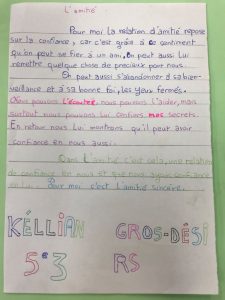 L'amitié
Pour moi la relation d'amitié repose
sur la confiance, car c'est grâce à ce sentiment
qu'on peut se fier à un ami, on peut aussi lui
remettre quelque chose de précieux pour nous.
On peut aussi s'abandonner à sa bien-
veillance et à sa bonne foi, les yeux fermés.
Nous pouvons l'écouter, nous pouvons l'aider, mais
surtout nous pouvons lui confier nos secrets.
En retour nous lui montrons qu'il peut avoir
confiance en nous aussi.
Dans l'amitié c'est cela, une relation
de confiance en nous et que nous ayons confiance
en lui. Pour moi c'est l'amitié sincère.
KÉLLIAN GROS-DÉSI
5e3 RS